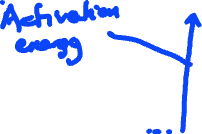 Activation
energy
...